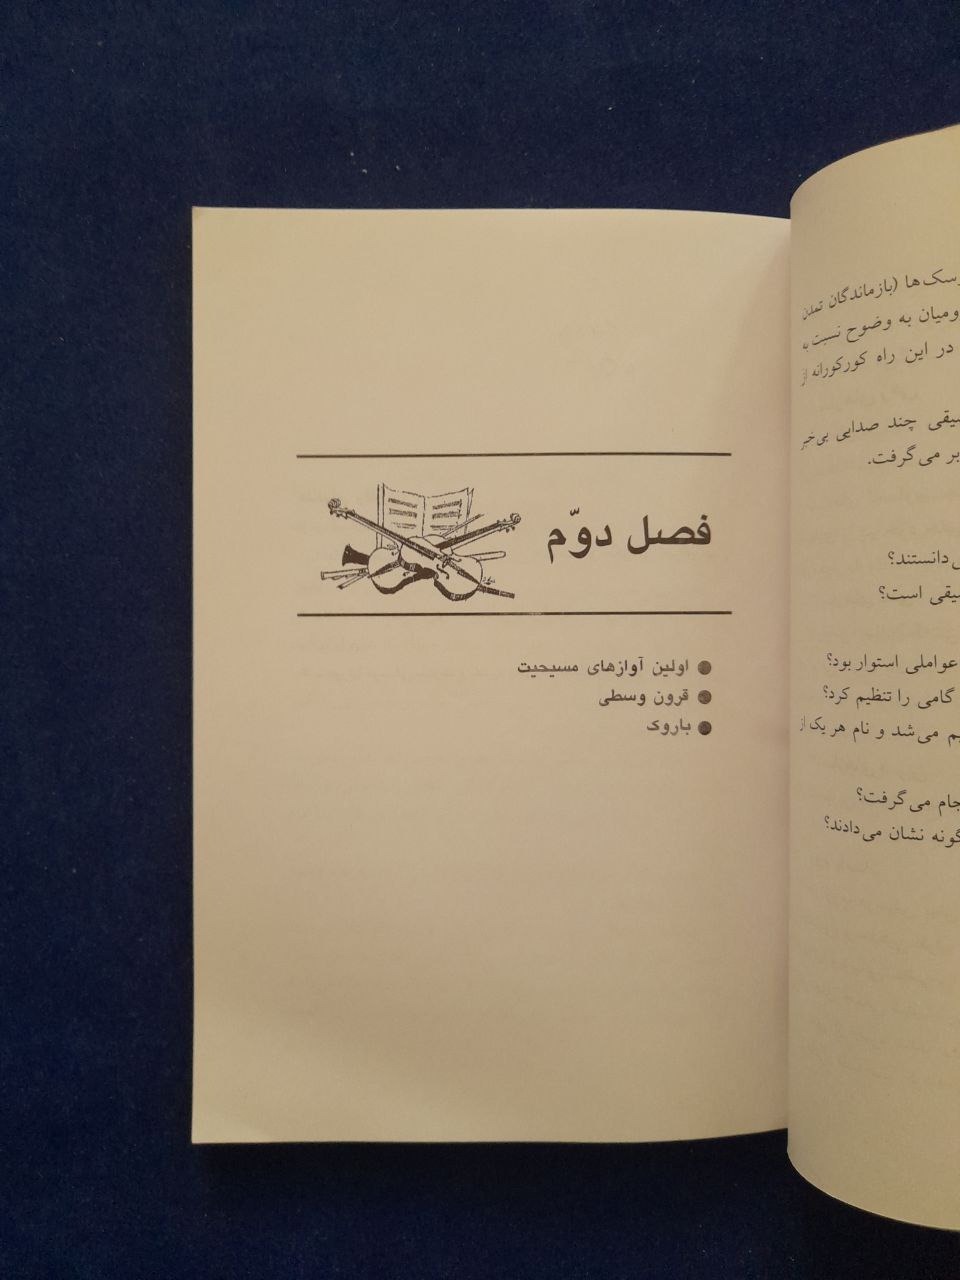 فصل دوّم
● اولین آوازهای مسیحیت
● قرون وسطی
● باروک
(بازماندگان تمدن
به وضوح نسبت به
در این راه کورکورانه از
چند صدایی بی‌خبر
بر می‌گرفت.
دانستند؟
است؟
عواملی استوار بود؟
گامی را تنظیم کرد؟
می‌شد و نام هر یک از
می‌گرفت؟
نشان می‌دادند؟